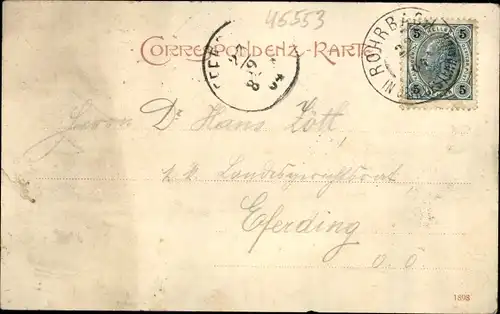 45553
CORRESPONDENZ-KARTE
ROHRBACH
5 5
5 5
Herrn Dr Hans Zötl
k.k. Landesgerichtsrat
Eferding
O. Ö.
1898